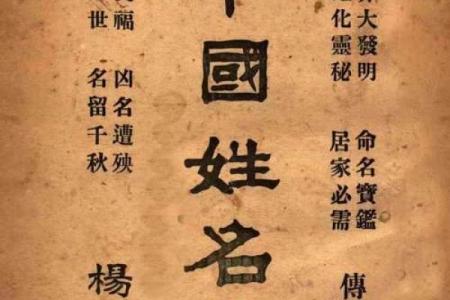 大發明 命名寶鑑
化靈秘 居家必需
傳
國姓名
福 凶名遭殃
世 名留千秋
楊